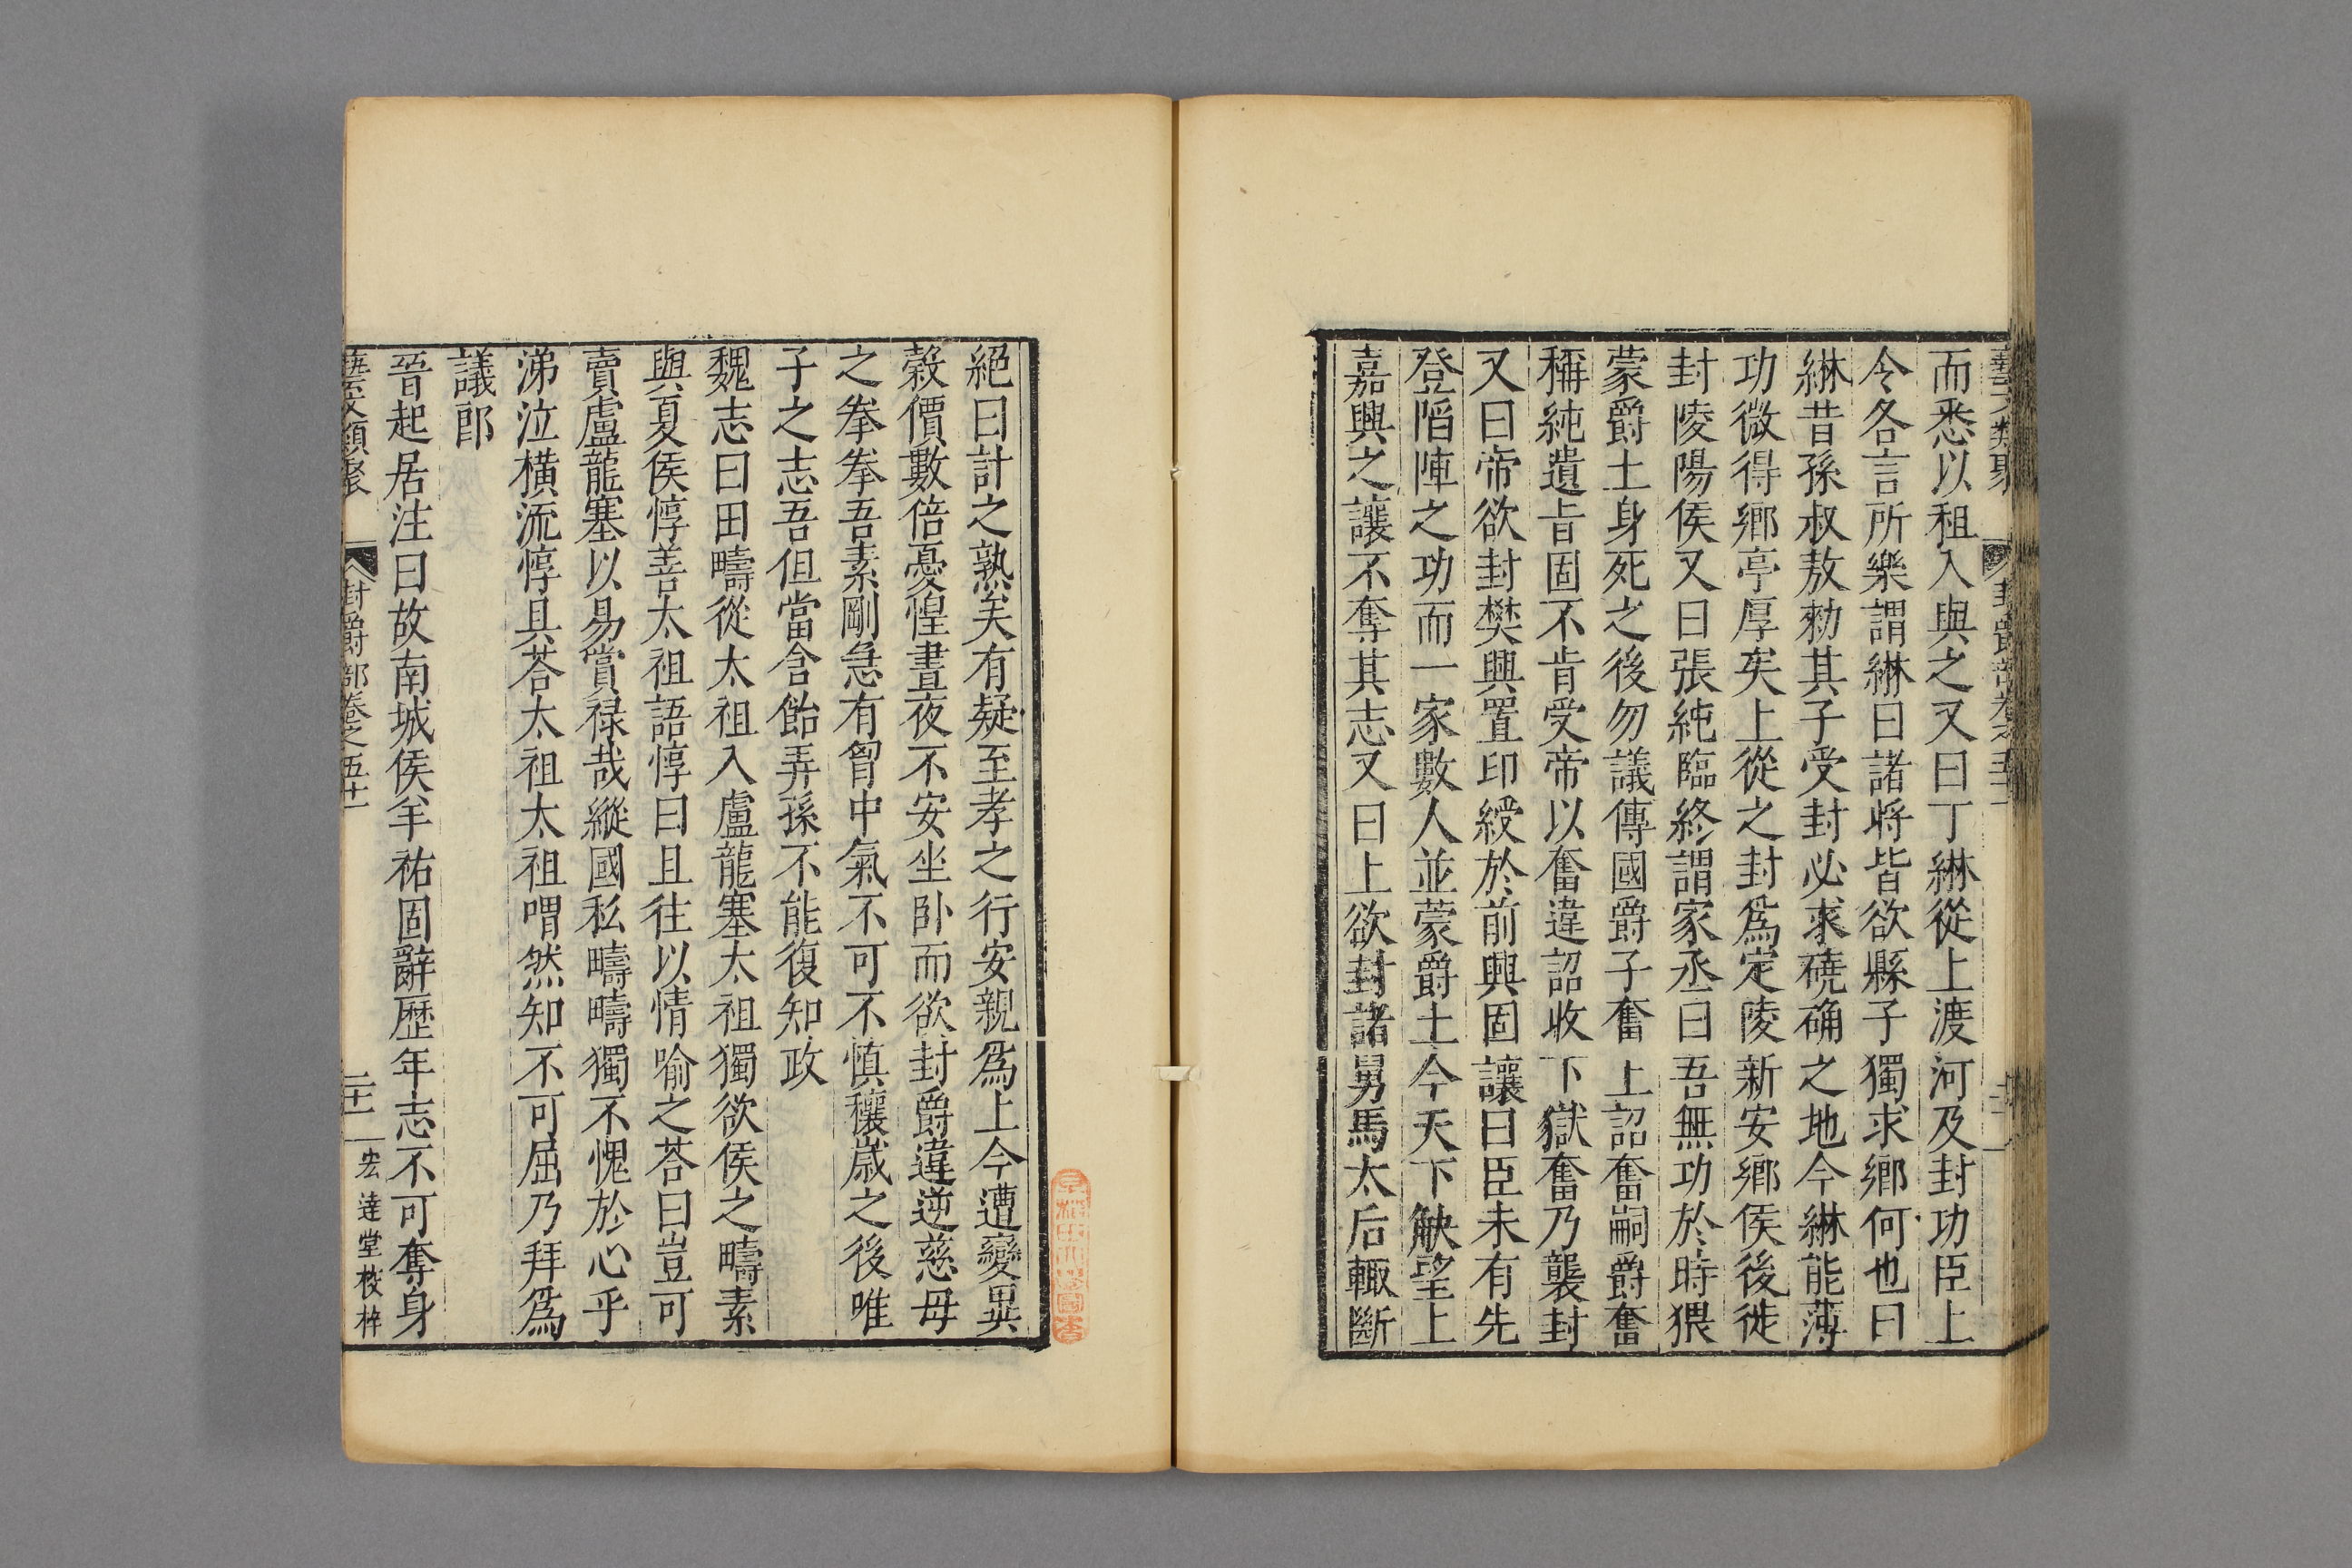 藝文類聚 封爵部卷之五十一
而悉以租入與之又曰丁綝從上渡河及封功臣上
令各言所樂謂綝曰諸將皆欲縣子獨求鄉何也曰
綝昔孫叔敖勑其子受封必求磽确之地今綝能薄
功微得鄉亭厚矣上從之封爲定陵新安鄉侯後徙
封陵陽侯又曰張純臨終謂家丞曰吾無功於時猥
蒙爵土身死之後勿議傳國爵子奮上詔奮嗣爵奮
稱純遺旨固不肯受帝以奮違詔收下獄奮乃襲封
又曰帝欲封樊興置印綬於前興固讓曰臣未有先
登陷陣之功而一家數人並蒙爵土今天下觖望上
嘉興之讓不奪其志又曰上欲封諸舅馬太后輙斷
絕曰計之熟矣有疑至孝之行安親爲上今遭變異
穀價數倍憂惶晝夜不安坐卧而欲封爵違逆慈母
之拳拳吾素剛急有胷中氣不可不慎穰歲之後唯
子之志吾但當含飴弄孫不能復知政
魏志曰田疇從太祖入盧龍塞太祖獨欲侯之疇素
與夏侯惇善太祖語惇曰且往以情喻之荅曰豈可
賣盧龍塞以易賞禄哉縱國私疇疇獨不愧於心乎
涕泣橫流惇具荅太祖太祖喟然知不可屈乃拜爲
議郎
晉起居注曰故南城侯羊祜固辭歷年志不可奪身
藝文類聚 封爵部卷之五十一 二十一 宏達堂校梓